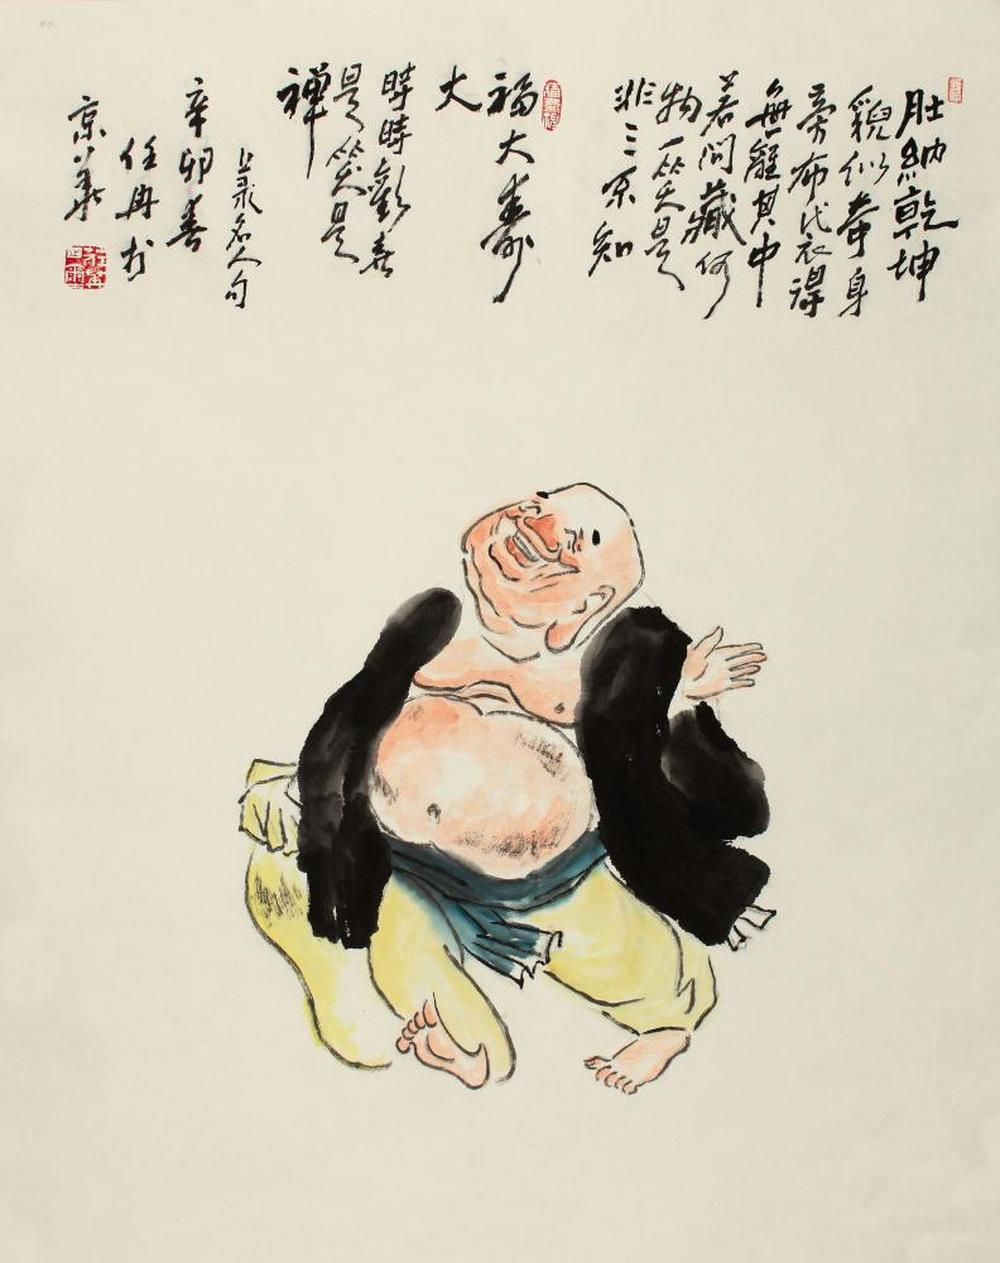 肚納乾坤
貌似奇身
旁布代衣得
無離其中
若問藏何
物一笑是
非三不知
福大壽
大
時時歡喜
是笑是
禅
上录名人句
辛卯春
任冉於
京華